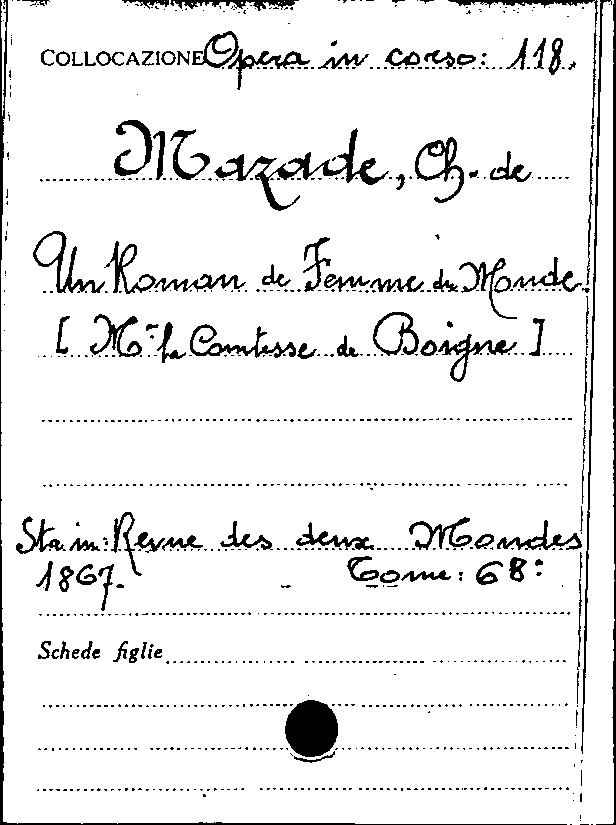 COLLOCAZIONE Opera in corso: 118.
Mazade, Ch. de
Un Roman de Femme du Monde.
[ Me la Comtesse de Boigne ]
Sta in: Revue des deux Mondes
1867. - Tome: 68:
Schede figlie